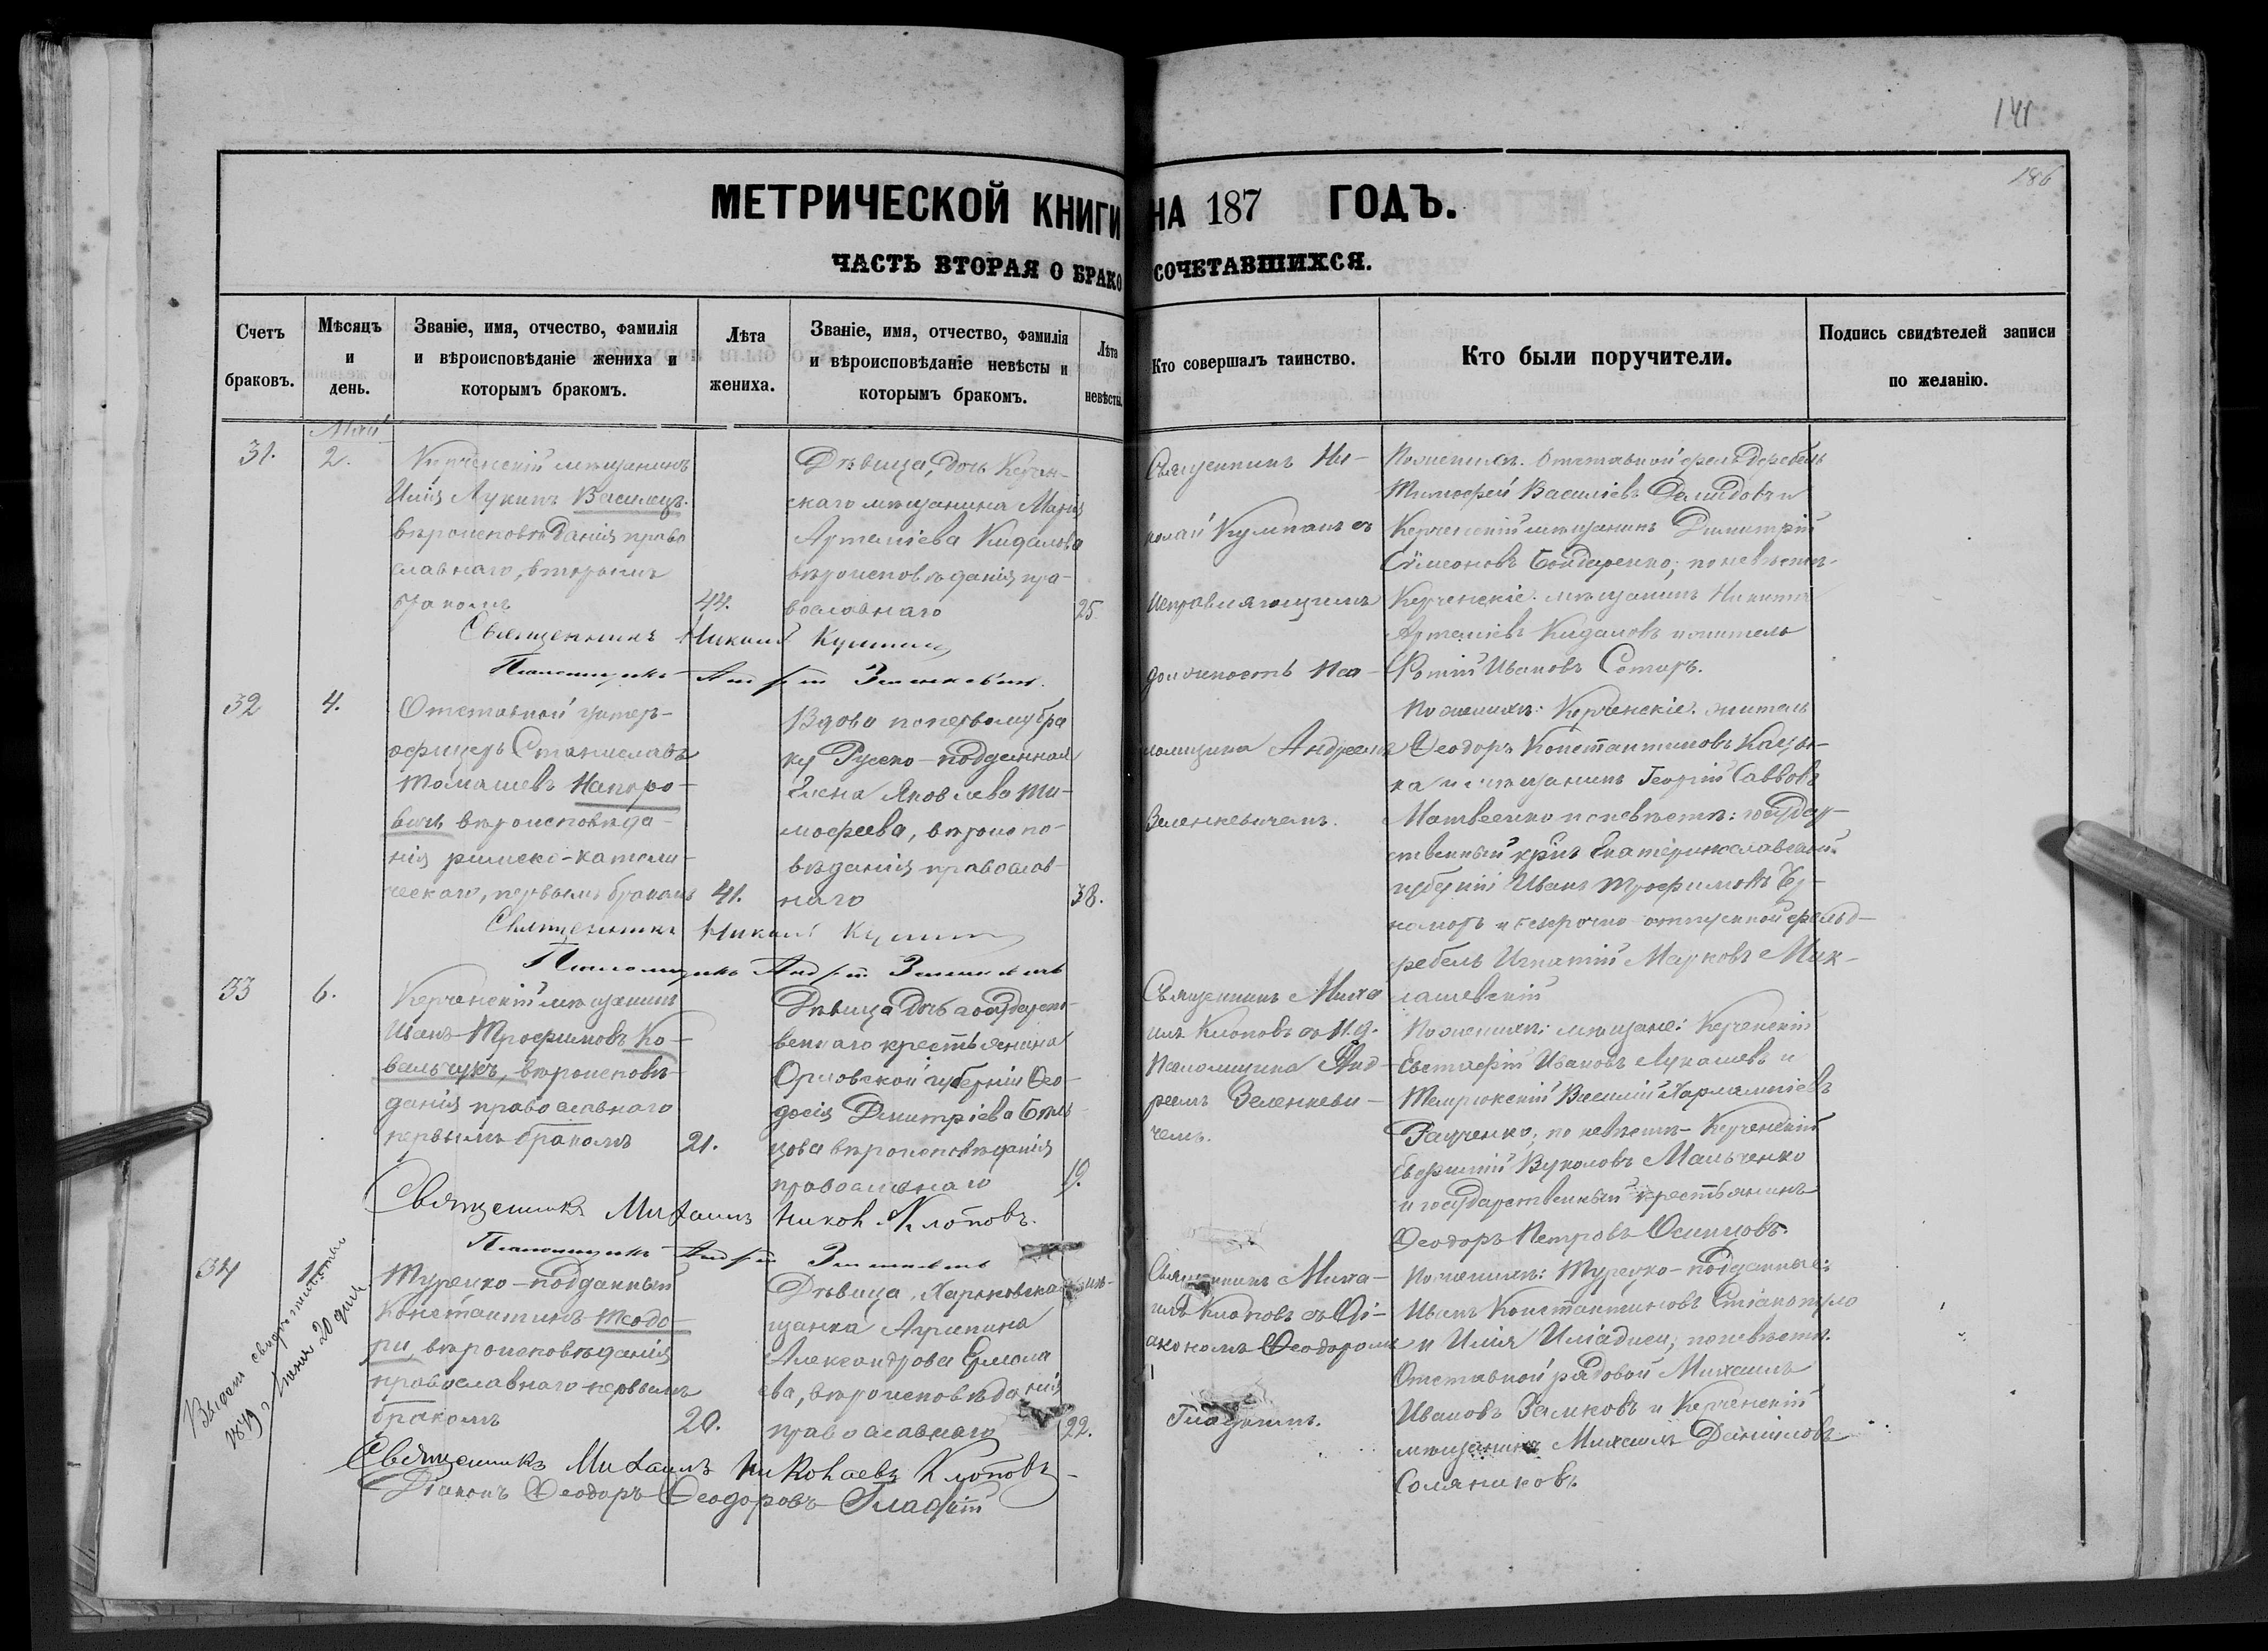 141
186
МЕТРИЧЕСКОЙ КНИГИ НА 187 ГОДЪ.
ЧАСТЬ ВТОРАЯ О БРАКОСОЧЕТАВШИХСЯ.
Счетъ браковъ.
Мѣсяцъ и день.
Званіе, имя, отчество, фамилія и вѣроисповѣданіе жениха и которымъ бракомъ.
Лѣта жениха.
Званіе, имя, отчество, фамилія и вѣроисповѣданіе невѣсты и которымъ бракомъ.
Лѣта невѣсты.
Кто совершалъ таинство.
Кто были поручители.
Подпись свидѣтелей записи по желанію.
Май
31.
2.
Керченскій мѣщанинъ
Илія Лукинъ Василецъ.
вѣроисповѣданія право
славнаго, вторымъ
бракомъ
44.
Дѣвица, дочь Керчен-
скаго мѣщанина Марія
Артеміева Кидалова
вѣроисповѣданія пра-
вославнаго
25
Священникъ Ни-
колай
исправляющимъ
должность Пса-
ломщика Андреемъ
Зеленкевичемъ.
По женихѣ: Отставной фельдфебель
Тимофей Василіевъ Давидовъ и
Керченскій мѣщанинъ Димитрій
Симеоновъ Бондаренко; по невѣстѣ-
Керченскіе: мѣщанинъ Никита
Артеміевъ Кидаловъ и житель
Фотій Ивановъ Сотиръ.
Священникъ Николай
Псаломщикъ Андрей Зеленкевичъ.
32
4.
Отставной унтеръ-
офицеръ Станиславъ
Томашевъ Напро-
вичъ вѣроисповѣда-
нія римско-католи-
ческаго, первымъ бракомъ
41.
Вдова по первому бра
ку Руско-подданная
Елена Яковлева Ти-
мофеева, вѣроиспо-
вѣданія православ-
наго
38.
По женихѣ: Керченскіе: житель
Ѳеодоръ Константиновъ Кацы-
ка и мѣщанинъ Георгій Саввовъ
Матвеенко и по невѣстѣ: государ-
ственный кр-нъ Екатеринославской
губерніи Иванъ Трофимовъ
и безсрочно отпускной фельд-
фебель Игнатій Марковъ Мик-
лашевскій
Священникъ Николай
Псаломщикъ Андрей Зеленкевичъ
33
6.
Керченскій мѣщанинъ
Иванъ Трофимовъ Ко-
вальчукъ, вѣроисповѣ-
данія православнаго
первымъ бракомъ
21.
Дѣвица дочь государст-
веннаго крестьянина
Орловской губерніи Ѳео-
досія Дмитріева
вѣроисповѣданія
православнаго
19.
Священникъ Миха
илъ Клоповъ съ И.д.
Псаломщика Анд-
реемъ Зеленкеви-
чемъ.
По женихѣ: мѣщане: Керченскій
Евстафій Ивановъ Лукашевъ и
Темрюкскій Василій Харлампіевъ
по невѣстѣ- Керченскій
Евфимій Вуколовъ Мальченко
и государственный крестьянинъ
Ѳеодоръ Петровъ Осиповъ.
Священникъ Михаилъ Никол. Клоповъ.
Псаломщикъ Андрей Зеленкевичъ
34
11
Выдано свидѣтельство
1879 г. Іюня 20 дня
Турецко-подданный
Константинъ Теодо-
ри, вѣроисповѣданія
православнаго первымъ
бракомъ
20.
Дѣвица, Харьковская мѣ-
щанка Агрипина
Александрова Ермола
ева, вѣроисповѣданія
православнаго
22.
Священникъ Миха-
илъ Клоповъ съ Ді-
акономъ Ѳеодоромъ
Гладкимъ.
По женихѣ: Турецко-подданные:
Иванъ Константиновъ
и Илія Иліадись; по невѣстѣ.
Отставной рядовой Михаилъ
Ивановъ Замковъ и Керченскій
мѣщанинъ Михаилъ Даніиловъ
Соляниковъ.
Священникъ Михаилъ Николаевъ Клоповъ
Діаконъ Ѳеодоръ Ѳеодоровъ Гладкій